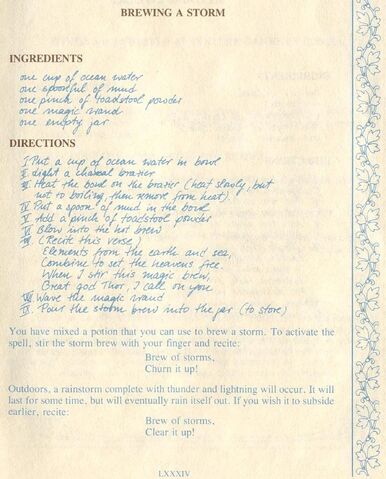 BREWING A STORM
INGREDIENTS
one cup of ocean water
one spoonful of mud
one pinch of toadstool powder
one magic wand
one empty jar
DIRECTIONS
I Put a cup of ocean water in bowl
II Light a charcoal brazier
III Heat the bowl on the brazier (heat slowly, but
not to boiling, then remove from heat).
IV Put a spoon of mud in the bowl
V Add a pinch of toadstool powder
VI Blow into the hot brew
VII (Recite this verse)
Elements from the earth and sea,
Combine to set the heavens free.
When I stir this magic brew,
Great god Thor, I call on you.
VIII Wave the magic wand
IX Pour the storm brew into the jar (to store)
You have mixed a potion that you can use to brew a storm. To activate the
spell, stir the storm brew with your finger and recite:
Brew of storms,
Churn it up!
Outdoors, a rainstorm complete with thunder and lightning will occur. It will
last for some time, but will eventually rain itself out. If you wish it to subside
earlier, recite:
Brew of storms,
Clear it up!
LXXXIV